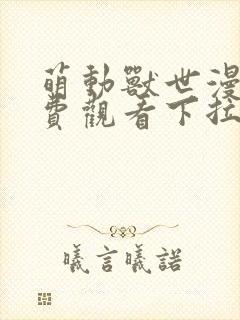 萌動獸世漫
費觀看下拉
曦言曦諾